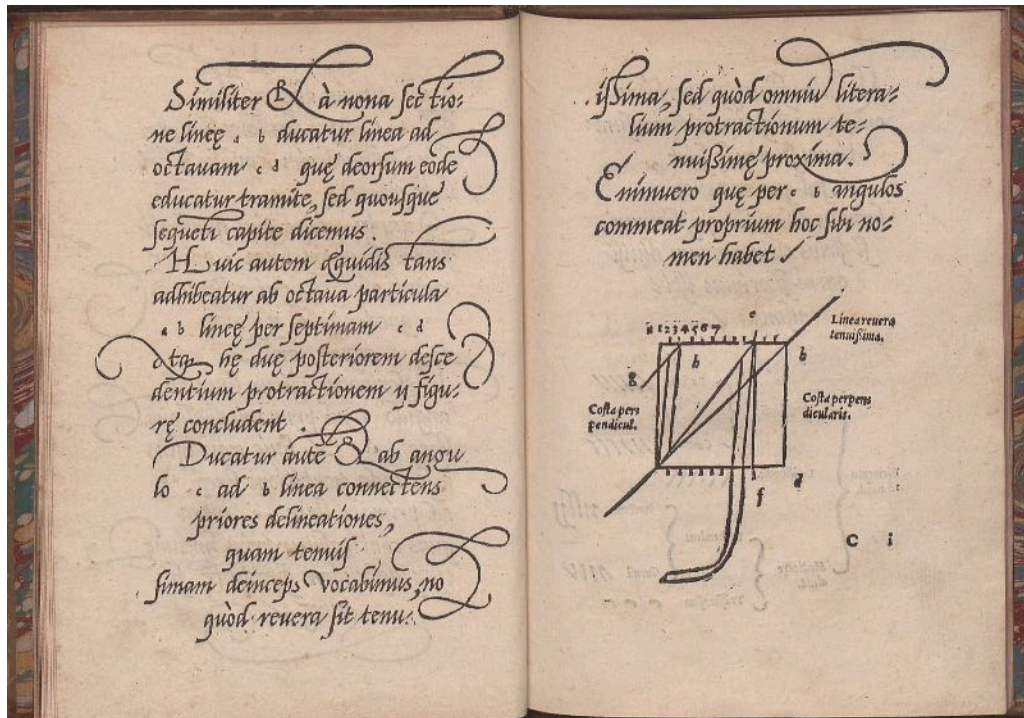 Similiter & à nona sectio:
ne linee a b ducatur linea ad
octauam c d quę deorsum eode
educatur tramite, sed quousque
sequeti capite dicemus.
Huic autem ęquidistans
adhibeatur ab octaua particula
a b lineę per septimam c d
atq hę duę posteriorem desce
dentium protractionem y figu-
rę concludent.
Ducatur aute & ab angu
lo c ad b linea connectens
priores delineationes,
quam tenuis
simam deinceps vocabimus, no
quòd reuera sit tenu:
ißima, sed quòd omniu litera:
lium protractionum te:
nuißimę proxima.
Enimuero quę per c b angulos
commeat proprium hoc sibi no:
men habet
a 1 2 3 4 5 6 7
e
Linea reuera
tenuißima.
h
b
g
Costa pers
pendicul.
Costa perpens
dicularis.
f
d
C i